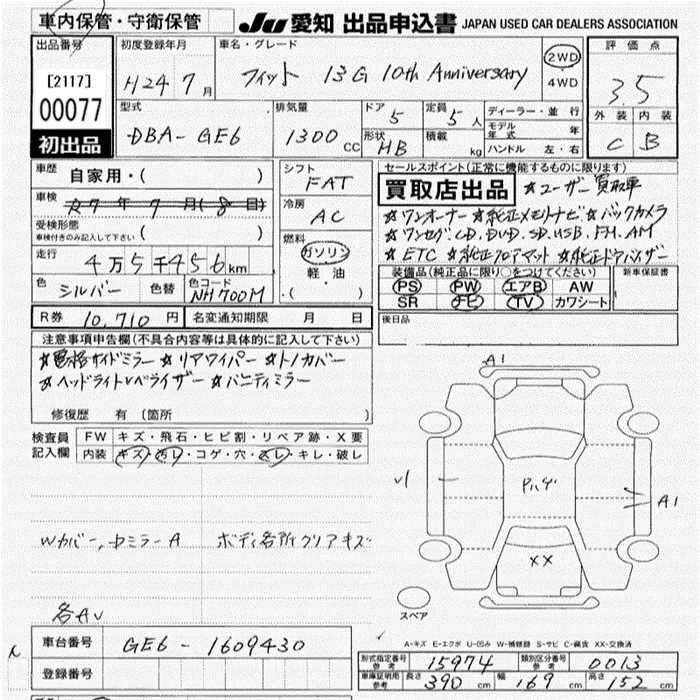 車内保管・守衛保管 JU 愛知 出品申込書 JAPAN USED CAR DEALERS ASSOCIATION
出品番号 初度登録年月 車名・グレード 評価点
[2117] H24年7月 フィット 13G 10th Anniversary 2WD 4WD 3.5
00077 型式 排気量 ドア 定員 ディーラー・並行 外装 内装
初出品 DBA-GE6 1300cc 5 5人 モデル年式 年 C B
形状 HB 積載 kg ハンドル 左・右
車歴 自家用・( ) シフト FAT セールスポイント(正常に機能するものに限ります)
車検 R7年7月(8日) 冷房 AC 買取店出品 ☆ユーザー買取車
受検形態 ☆ワンオーナー ☆純正メモリナビ ☆バックカメラ
車検付きのみ記入して下さい ( ) 燃料 ☆ワンセグ CD.DVD.SD.USB.FM.AM
走行 4万5千456km ガソリン ☆ETC ☆純正フロアマット ☆純正ドアバイザー
色 シルバー 色替 色コード NH700M 軽油 ・( ) 装備品(純正品に限り○をつけてください) 新車保証書
PS PW エアB AW
SR ナビ TV カワシート
R券 10,710円 名変通知期限 月 日 後日品
注意事項申告欄(不具合内容等は具体的に記入して下さい)
サイドミラー ☆リアワイパー ☆トノカバー
☆ヘッドライトレベライザー ☆バニティミラー
修復歴 有 (箇所 )
検査員記入欄 FW キズ・飛石・ヒビ割・リペア跡・X要
内装 キズ・汚レ・コゲ・穴・スレ・キレ・破レ
A1
A1
XX
Wカバー, ミラーA ボディ各所クリアキズ
スペア
各AU
車台番号 GE6-1609430 A-キズ E-エクボ U-凹み W-補修跡 S-サビ C-腐食 XX-交換済
登録番号 形式指定番号 参考 15974 類別区分番号 参考 0013
車庫証明用 参考 長さ 390cm 幅 169cm 高さ 152cm